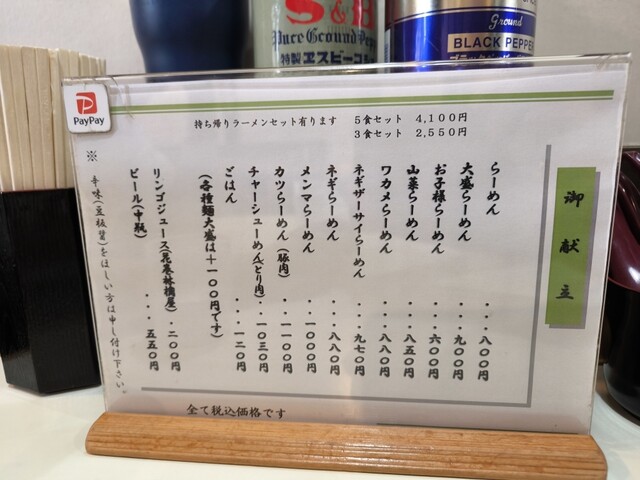 S&B
Pure Ground Pepper
特製ヱスビーコショー
Ground
BLACK PEPPER
PayPay
持ち帰りラーメンセット有ります 5食セット 4,100円
3食セット 2,550円
御献立
らーめん・・・八〇〇円
大盛らーめん・・・九〇〇円
お子様らーめん・・・六〇〇円
山菜らーめん・・・八五〇円
ワカメらーめん・・・八八〇円
ネギザーサイらーめん・・・九七〇円
ネギらーめん・・・八八〇円
メンマらーめん・・・一〇〇〇円
カツらーめん(豚肉)・・・一一〇〇円
チャーシューめん(とり肉)・・・一〇三〇円
ごはん・・・一二〇円
(各種麺大盛は+一〇〇円です)
リンゴジュース(花巻林檎屋)・二〇〇円
ビール(中瓶)・・・五五〇円
※辛味(豆板醤)をほしい方は申し付け下さい。
全て税込価格です